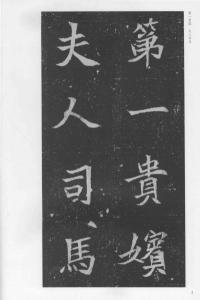 第一貴嬪
夫人司馬